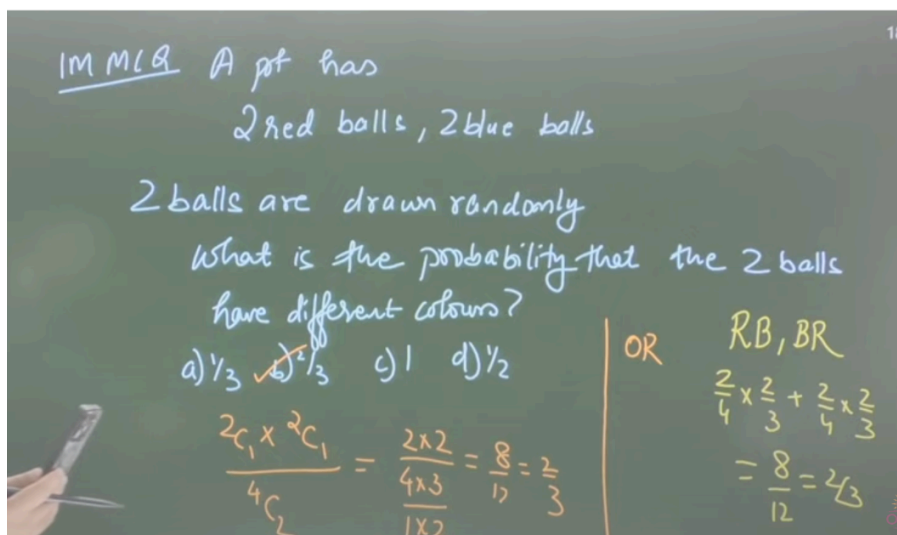 1M MCQ A pt has
2 red balls, 2 blue balls
2 balls are drawn randomly
What is the probability that the 2 balls
have different colours?
a) 1/3 b) 2/3 c) 1 d) 1/2
²C₁ × ²C₁ / ⁴C₂ = 2×2 / (4×3 / 1×2) = 8/12 = 2/3
OR
RB, BR
2/4 × 2/3 + 2/4 × 2/3
= 8/12 = 2/3